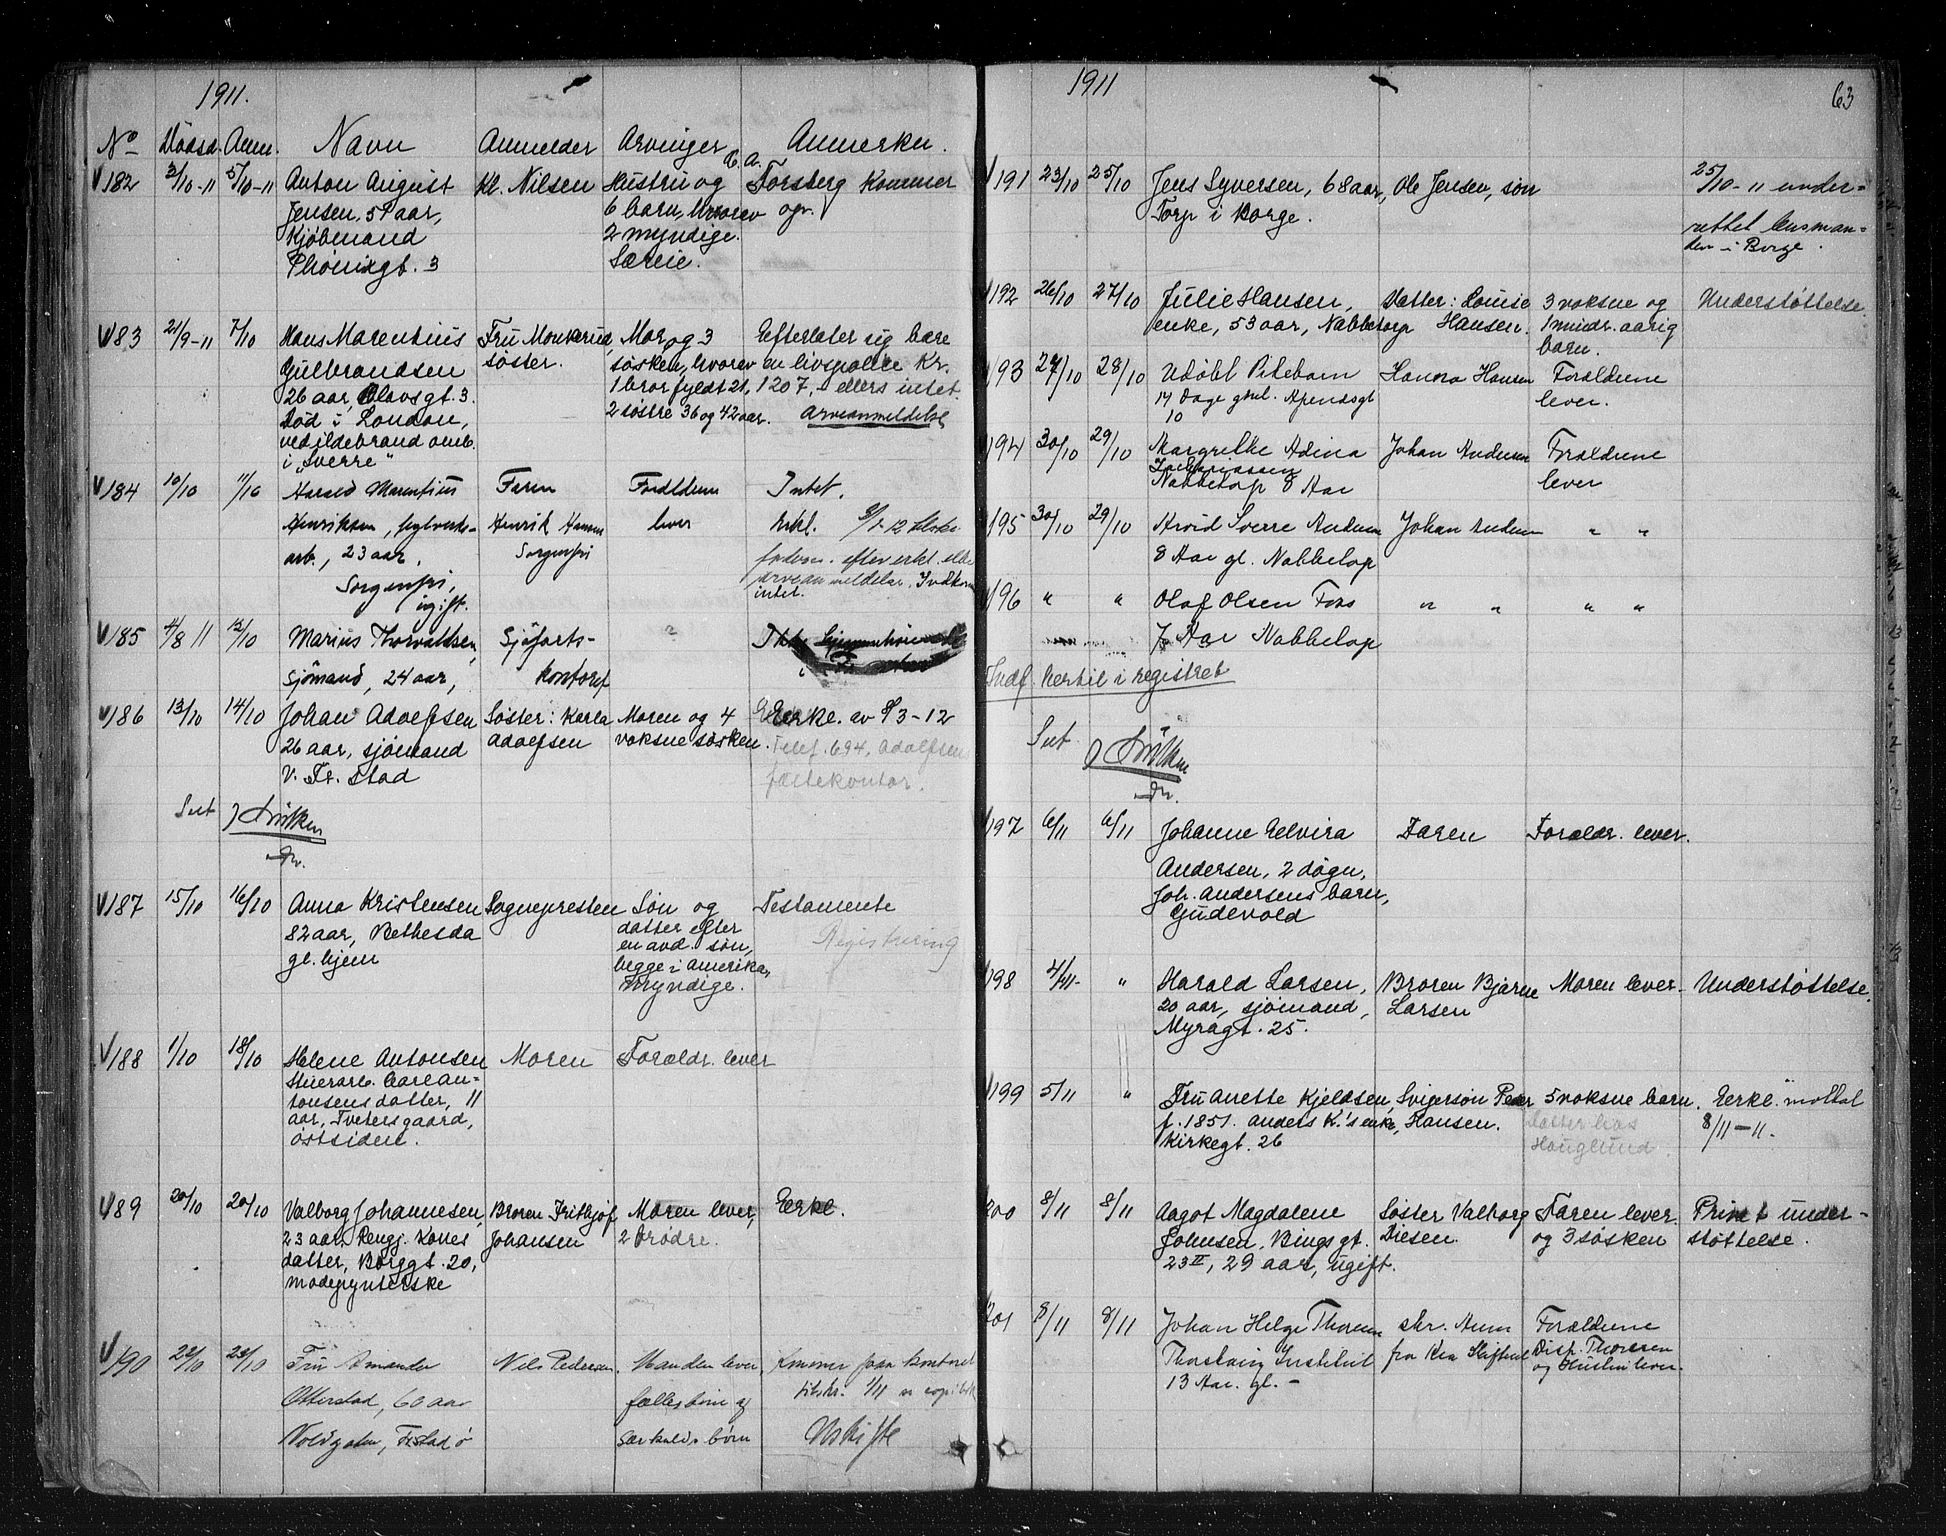 1911.
No Dödsd. Anm. Navn Anmelder Arvinger Anmerkn.
182 3/10-11 5/10-11 Anton August Kl. Nilsen Hustru og Forsberg kommer
Jensen, 57 aar, 6 barn, hvorav opr.
Kjøbmand 2 myndige.
Phönixgt. 3 Særeie.
183 21/9-11 7/10 Hans Marentius Fru Monkerud, Mor og 3 Efterlater sig bare
Gulbrandsen søster. søsken, hvorav en livspolice Kr.
26 aar, Olavsgt. 3. 1 bror fyldt 21, 1207, ellers intet.
Död i London, 2 søstre 36 og 42 aar. Arveanmeldelse
ved ildebrand omb.
i "Sverre"
184 10/10 11/10 Harald Marentius Faren Foreldrene Intet.
Henriksen, sagbruks- Henrik Hansen lever Erkl.
arb., 23 aar, Sorgenfri efter erkl. eller
Sorgenfri, arveanmeldelse. Indkom
ugift. intet.
185 4/8 11 12/10 Marius Thorvaldsen, Sjøfarts- ? Ikke
sjömand, 24 aar, kontoret
186 13/10 14/10 Johan Adolfsen Søster: Karla Moren og 4 Eerkl. av 8/3-12
26 aar, sjømand Adolfsen voksne søsken. Telef. 694, Adolfsen
v. Fr. stad fæstekontor.
Set
187 15/10 16/10 Anna Kristensen Sognepresten Søn og Testamente
82 aar, Bethesda datter efter Registrering
gl. hjem en avd. søn,
begge i Amerika,
myndige.
188 1/10 18/10 Helene Antonsen Moren Forældr. lever
Stuerarb. Carl An-
tonsens datter, 11
aar, Tvetersgaard,
Østsiden.
189 20/10 20/10 Valborg Johannesen, Broren Frithjof Moren lever, Eerkl.
23 aar, Rengj. Kones Johansen 2 brødre.
datter, Borggt. 20,
modepynterske
190 22/10 23/10 Fru Amanda Nils Pedersen. Manden lever, kommer paa kontoret
Otterstad, 60 aar fellesbarn og 1/11
Voldgaten, Frstad ø særkulds børn Uskifte
1911 63
191 23/10 25/10 Jens Syversen, 68 aar, Ole Jensen, søn 25/10-11 under-
Torp i Borge. rettet lensman-
den i Borge.
192 26/10 27/10 Julie Hansen, Datter: Louise 3 voksne og Understøttelse.
enke, 53 aar, Nabbetorp Hansen. 1 mindr. aarig
barn.
193 27/10 28/10 Udöbt Pikebarn Hanna Hansen Forældrene
14 Dage gml. Apenæsgt lever.
10
194 30/10 29/10 Margrethe Adina Johan Andersen Forældrene
Johannassen lever
Nabbetop 8 Aar
195 30/10 29/10 Arvid Sverre Andersen Johan Andersen " "
8 Aar gl. Nabbetop
196 " " Olaf Olsen Foss " " " "
7 Aar Nabbetop
Indf. hertil i registret
Set
197 6/11 6/11 Johanne Elvira Faren Forældr. lever.
Andersen, 2 døgn,
Joh. Andersens barn,
Gudevold
198 4/11 " Harald Larsen, Broren Bjarne Moren lever. Understøttelse.
20 aar, sjömand, Larsen
Myragt. 25.
199 5/11 " Fru Anette Kjeldsen, Svigersøn Peder 5 voksne barn. Eerkl. mottat
f. 1851. Anders K.'s enke, Hansen. Datter hos 8/11-11.
Kirkegt. 26 Hauglund.
200 8/11 8/11 Aagot Magdalene Søster Valborg Faren lever Privat under-
Johnsen, Bings gt. Diesen og 3 søsken støttelse.
23 II, 29 aar, ugift.
201 8/11 8/11 Johan Helge Thoresen skr. Anm Forældrene
Institut fra Skifteret Disp. Thoresen
13 Aar. gl. - og Hustru lever.